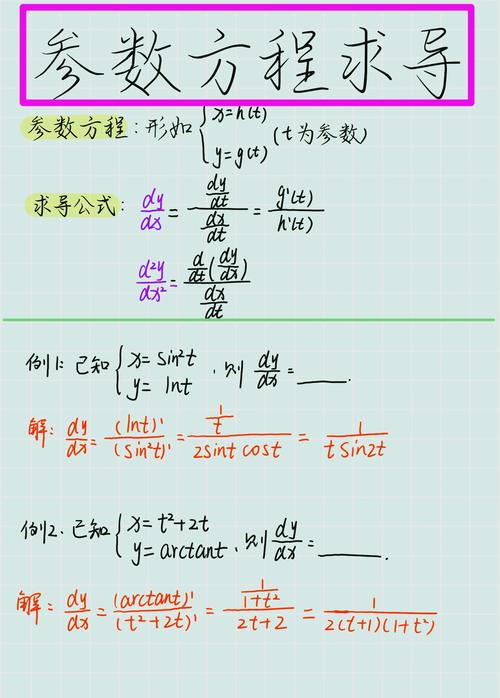 参数方程求导
参数方程:形如 { x=h(t) y=g(t) (t为参数)
求导公式: dy/dx = (dy/dt)/(dx/dt) = g'(t)/h'(t)
d²y/dx² = (d/dt(dy/dx))/(dx/dt)
例1: 已知 { x=sin²t y=lnt , 则 dy/dx = ____.
解: dy/dx = (lnt)'/(sin²t)' = (1/t)/(2sint cost) = 1/(t sin2t)
例2. 已知 { x=t²+2t y=arctant , 则 dy/dx = ____.
解: dy/dx = (arctant)'/(t²+2t)' = (1/(1+t²))/(2t+2) = 1/(2(t+1)(1+t²))